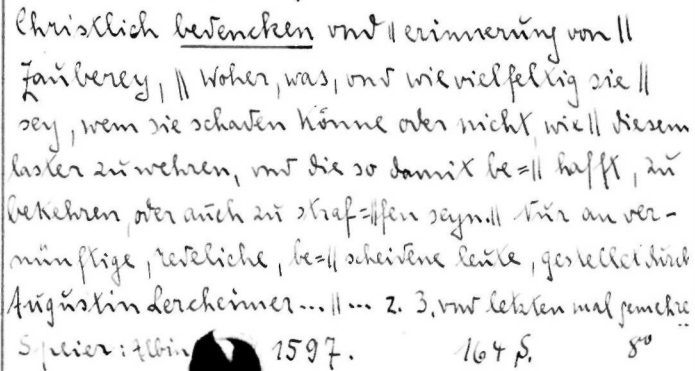 Christlich bedencken vnd || erinnerung von ||
Zauberey, || Woher, was, vnd wie vielfeltig sie ||
sey, wem sie schaden könne oder nicht, wie || diesem
laster zu wehren, vnd die so damit be=|| hafft, zu
bekehren, oder auch zu straf=||fen seyn.|| Nur an ver-
nünftige, redeliche, be=|| scheidene leute, gestellet durch
Augustin Lercheimer ... || ... z. 3. vnd letzten mal gemehre
Speier: Albin 1597. 164 S. 8°